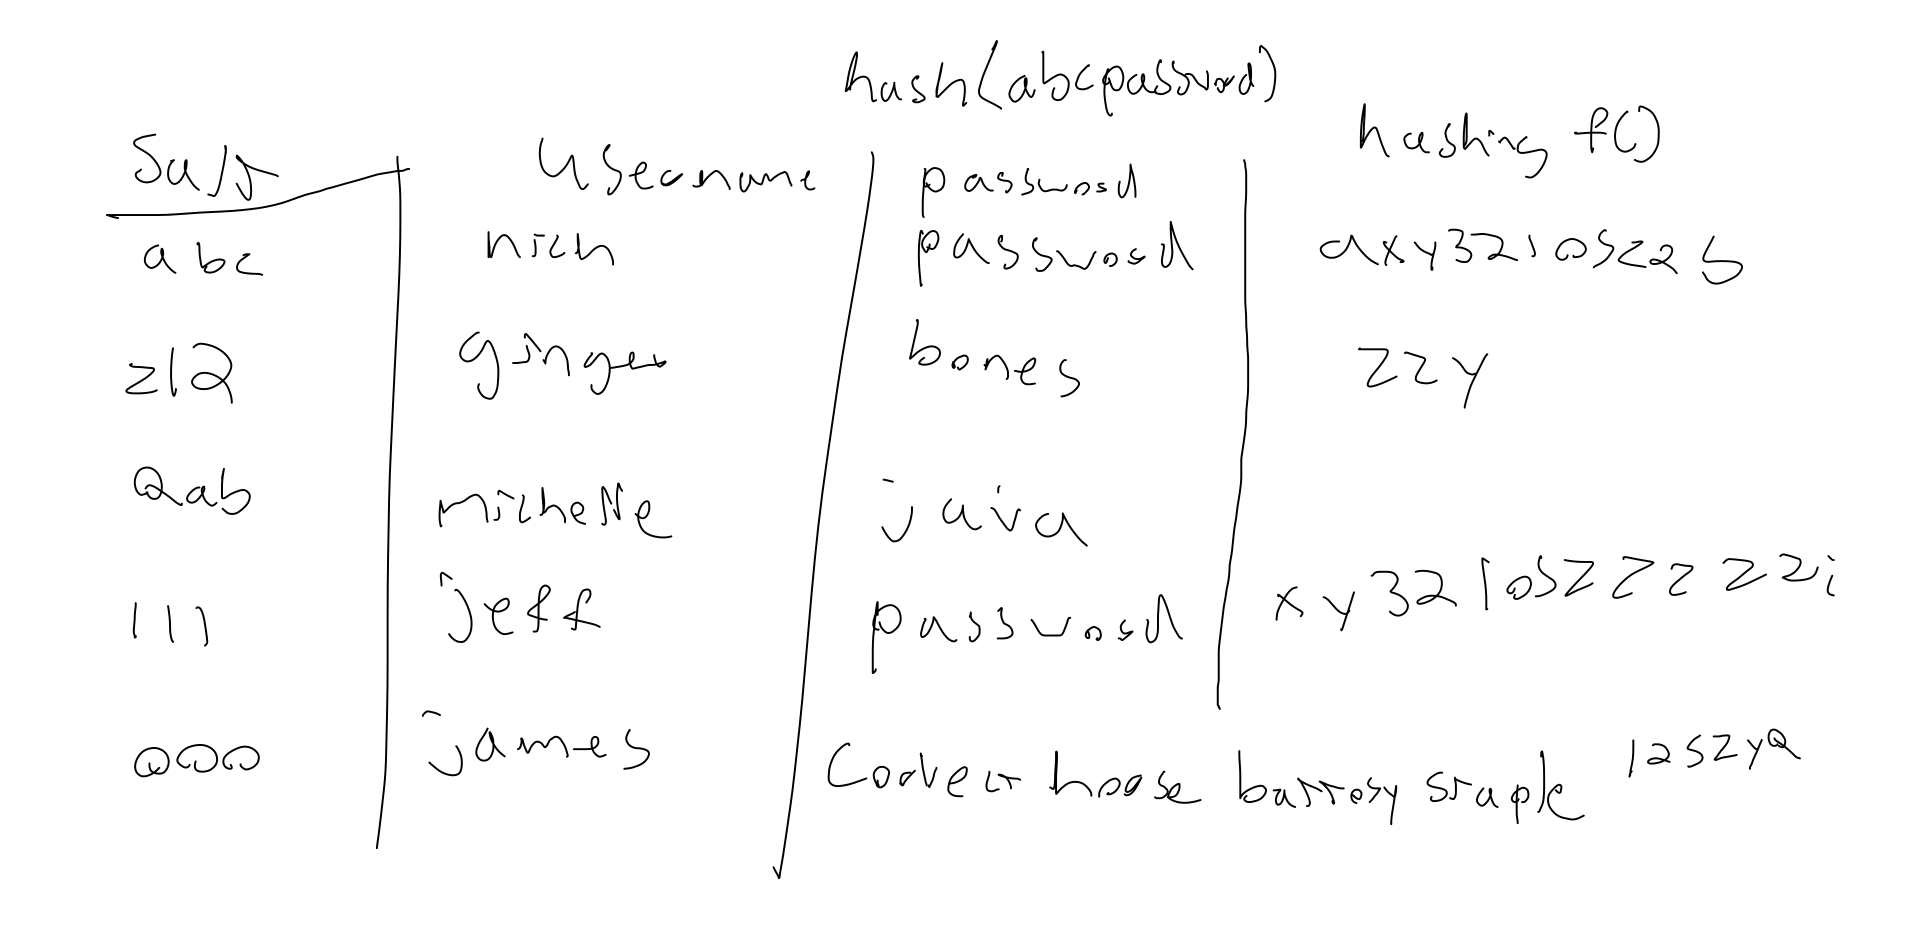 hash(abcpassword)
Salt Username password hashing f()
abc nich password axy32105z2b
z12 ginger bones zzy
Qab michelle java
111 jeff password xy32105zzzzzi
000 james Correct horse battery staple 125zyQ